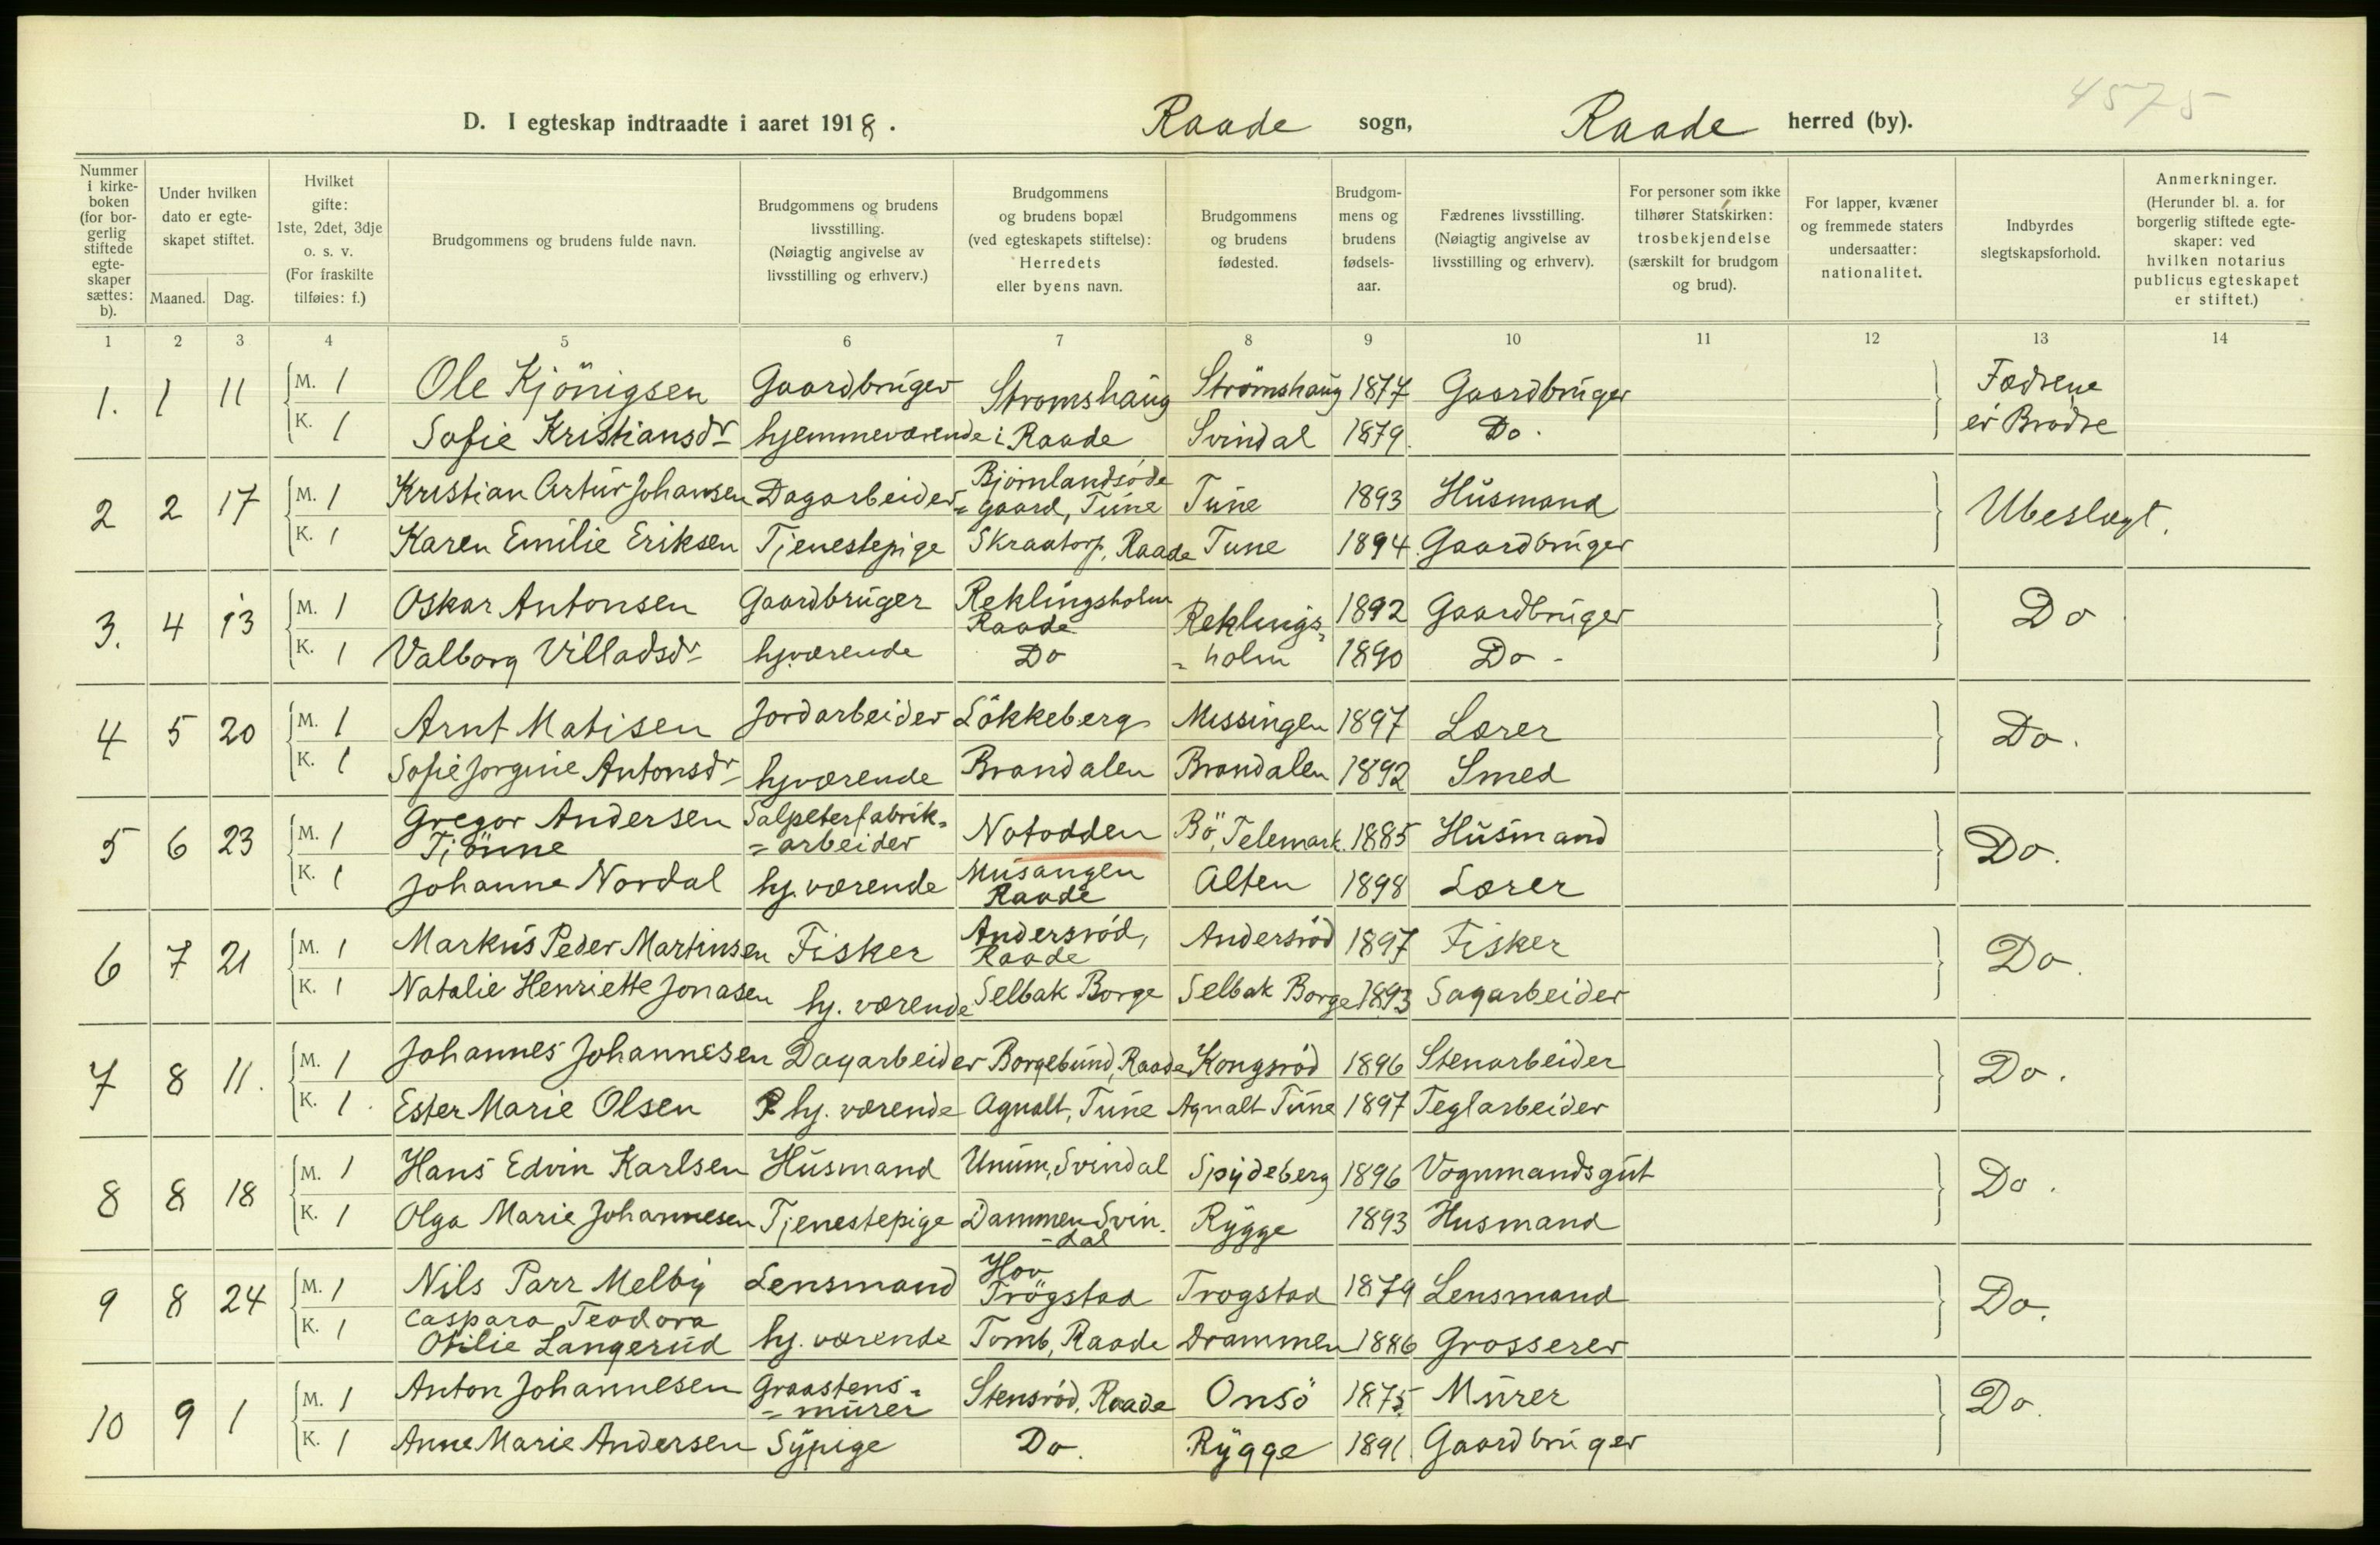 4575
D. I egteskap indtraadte i aaret 1918. Raade sogn, Raade herred (by).
Nummer i kirkeboken (for borgerlig stiftede egteskaper sættes: b).
Under hvilken dato er egteskapet stiftet.
Maaned. Dag.
Hvilket gifte: 1ste, 2det, 3dje o. s. v. (For fraskilte tilføies: f.)
Brudgommens og brudens fulde navn.
Brudgommens og brudens livsstilling. (Nøiagtig angivelse av livsstilling og erhverv.)
Brudgommens og brudens bopæl (ved egteskapets stiftelse): Herredets eller byens navn.
Brudgommens og brudens fødested.
Brudgommens og brudens fødselsaar.
Fædrenes livsstilling. (Nøiagtig angivelse av livsstilling og erhverv).
For personer som ikke tilhører Statskirken: trosbekjendelse (særskilt for brudgom og brud).
For lapper, kvæner og fremmede staters undersaatter: nationalitet.
Indbyrdes slegtskapsforhold.
Anmerkninger. (Herunder bl. a. for borgerlig stiftede egteskaper: ved hvilken notarius publicus egteskapet er stiftet.)
1 2 3 4 5 6 7 8 9 10 11 12 13 14
1. 1 11 M. 1 Ole Kjönigsen Gaardbruger Stromshaug Strömshaug 1877 Gaardbruger Fædrene
K. 1 Sofie Kristiansdr hjemmeværende i Raade Svindal 1879. Do. er Brødre
2 2 17 M. 1 Kristian Artur Johansen Dagarbeider Bjornlandsöde=gaard, Tune Tune 1893 Husmand Ubeslægt.
K. 1 Karen Emilie Eriksen Tjenestepige Skraatorp, Raade Tune 1894. Gaardbruger
3. 4 13 M. 1 Oskar Antonsen Gaardbruger Reklingsholm Raade Reklings= 1892 Gaardbruger Do
K. 1 Valborg Villadsdr hj.værende Do =holm 1890 Do -
4 5 20 M. 1 Arnt Matisen Jordarbeider Lökkeberg Missingen 1897 Lærer Do.
K. 1 Sofie Jorgine Antonsdr hjværende Brandalen Brandalen 1892 Smed
5 6 23 M. 1 Gregor Andersen Tjönne Salpeterfabrik==arbeider Notodden Bö, Telemark. 1885 Husmand Do.
K. 1 Johanne Nordal hj. værende Musangen Raade Alten 1898 Lærer
6 7 21 M. 1 Markus Peder Martinsen Fisker Andersröd, Raade Andersröd 1897 Fisker Do.
K. 1 Natalie Henriette Jonasen hj. værende Selbak Borge Selbak Borge 1893 Sagarbeider
7 8 11. M. 1 Johannes Johannesen Dagarbeider Borgebund, Raade Kongsröd 1896 Stenarbeider Do.
K. 1. Ester Marie Olsen hj. værende Agnalt, Tune Agnalt Tune 1897 Teglarbeider
8 8 18 M. 1 Hans Edvin Karlsen Husmand Unum, Svindal Spydeberg 1896 Vognmandsgut Do.
K. 1 Olga Marie Johannesen Tjenestepige Dammen Svin-dal Rygge 1893 Husmand
9 8 24 M. 1 Nils Parr Melby Lensmand Hov Trögstad Trogstad 1879 Lensmand Do.
K. 1 Caspara Teodora Otilie Langerud hj. værende Tomb, Raade Drammen 1886 Grosserer
10 9 1 M. 1 Anton Johannesen Graastens==murer Stensröd, Raade Onsö 1875. Murer Do.
K. 1 Anne Marie Andersen Sypige Do. Rygge 1891. Gaardbruger